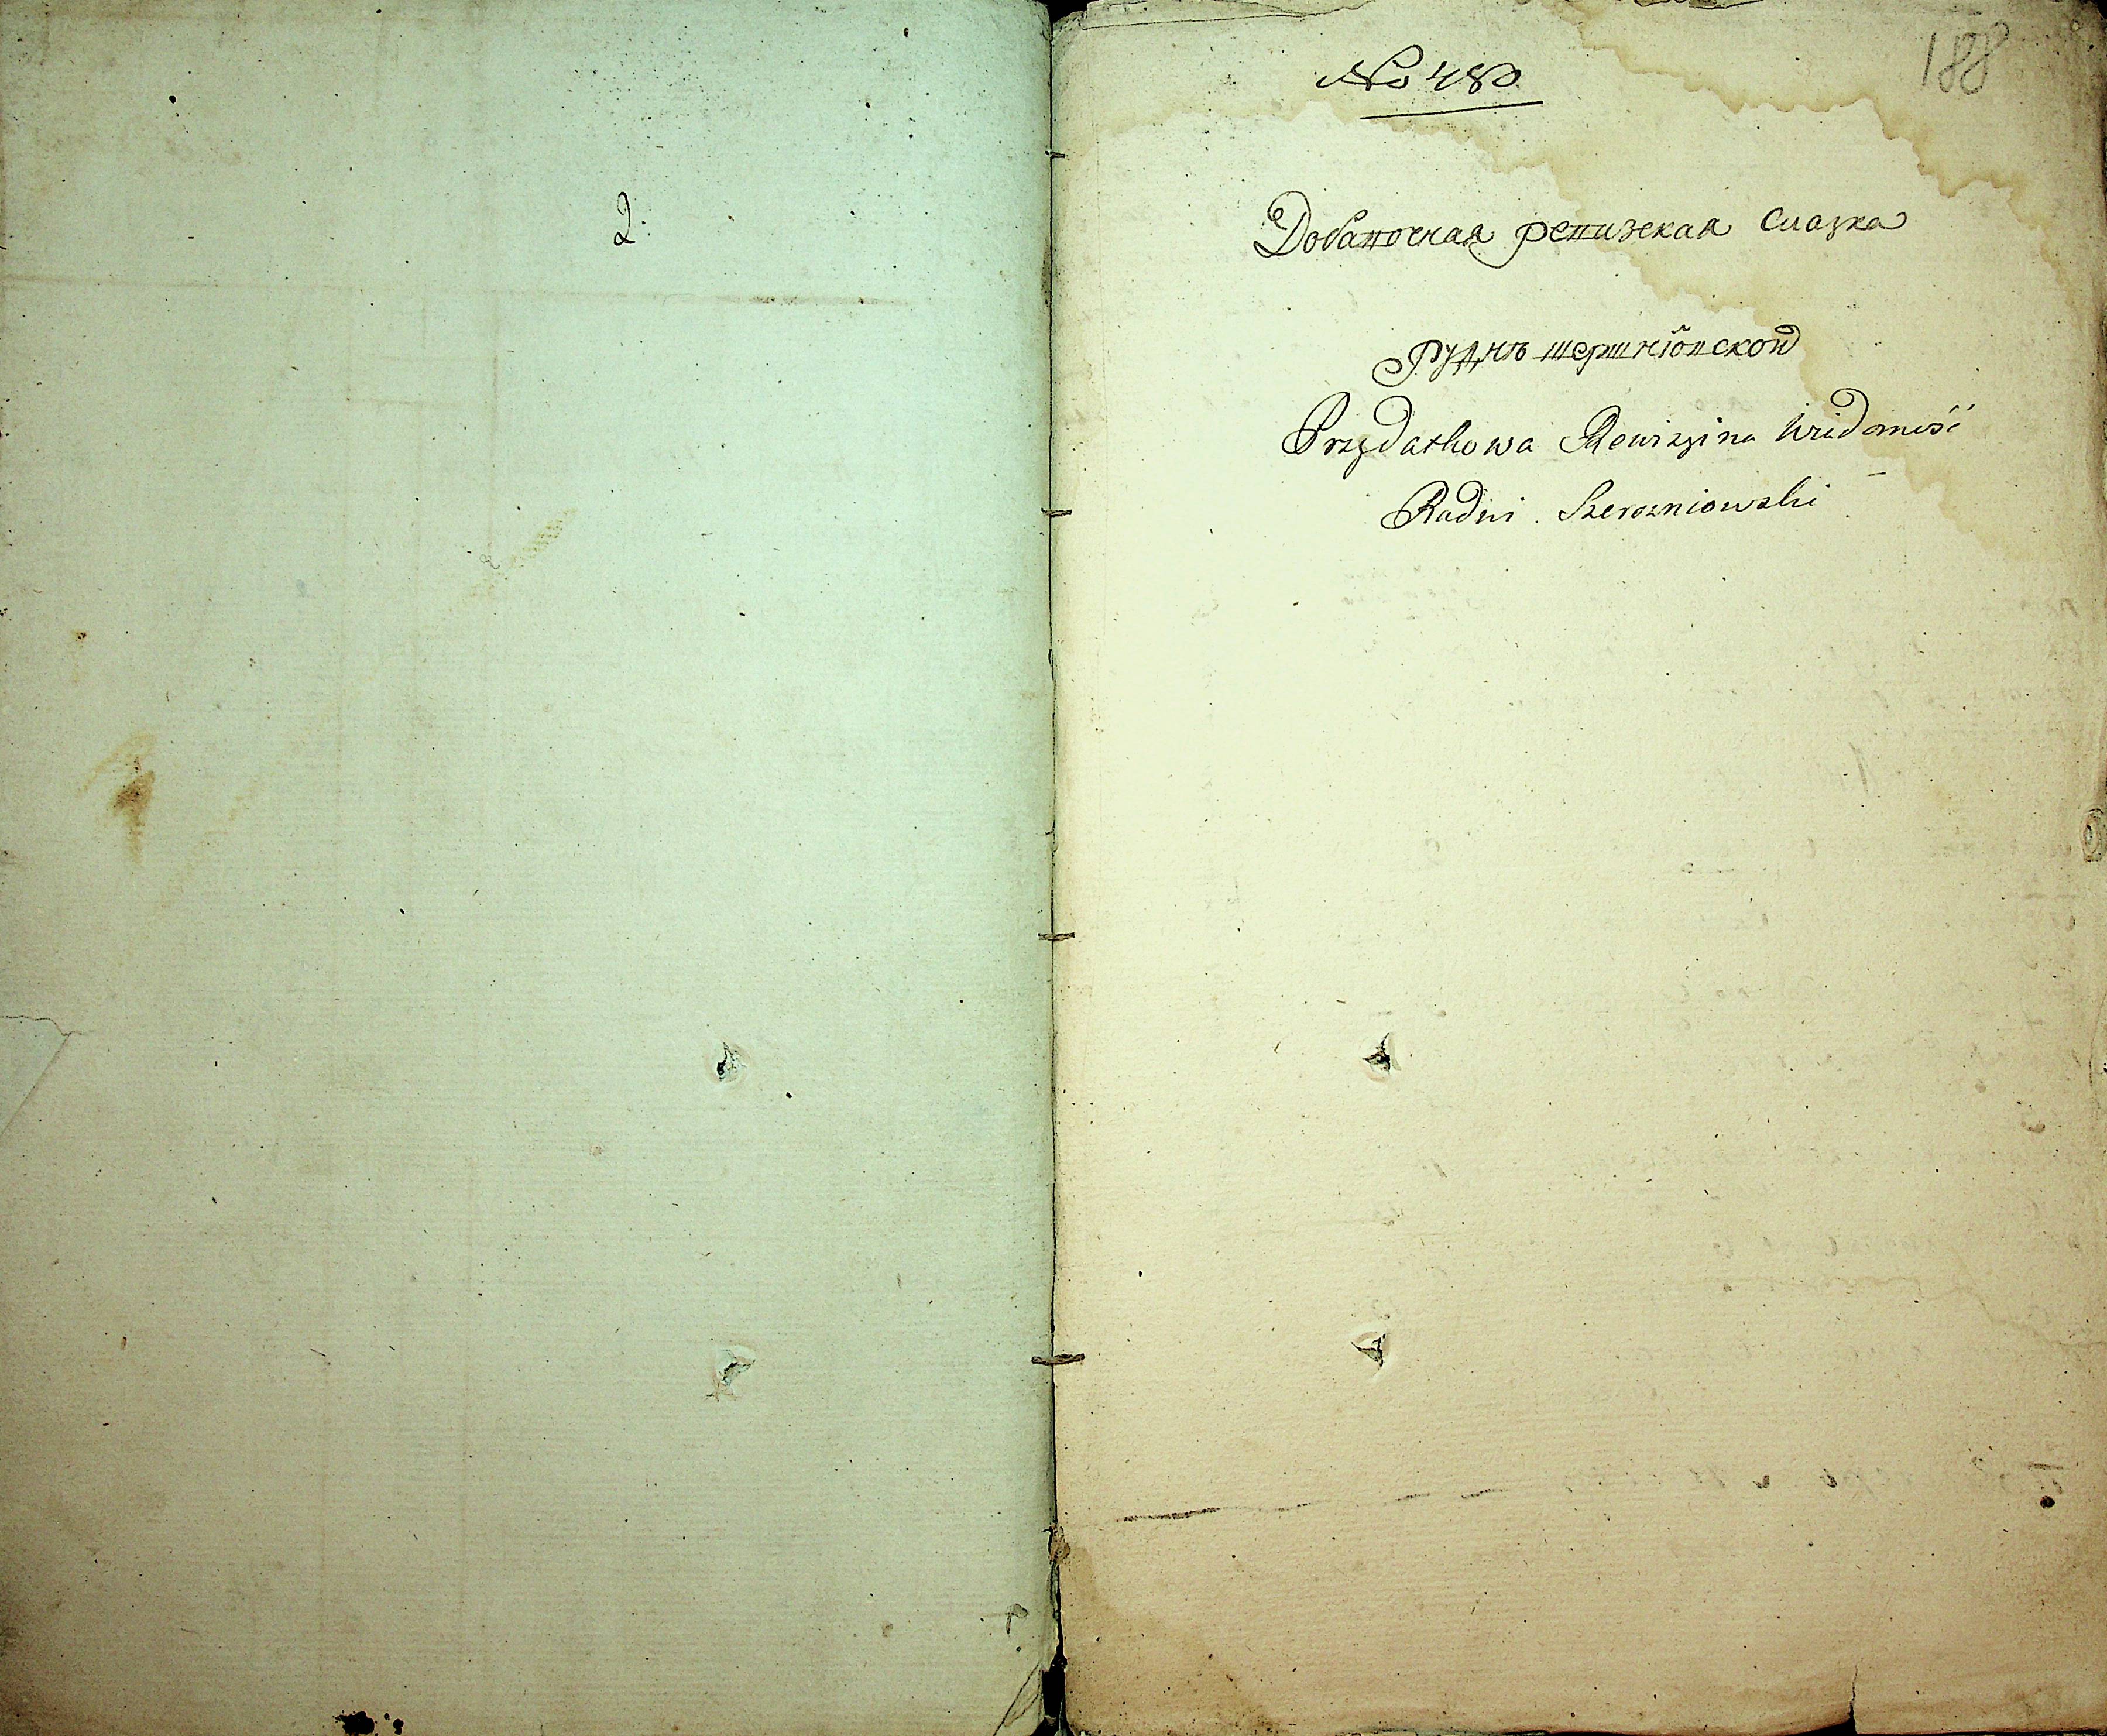 2.
188
No 480
Добавочная ревизская сказка
Руднѣ шершнiовской
Przydatkowa Rewizyina Wiadomość
Rudni Szerszniowski